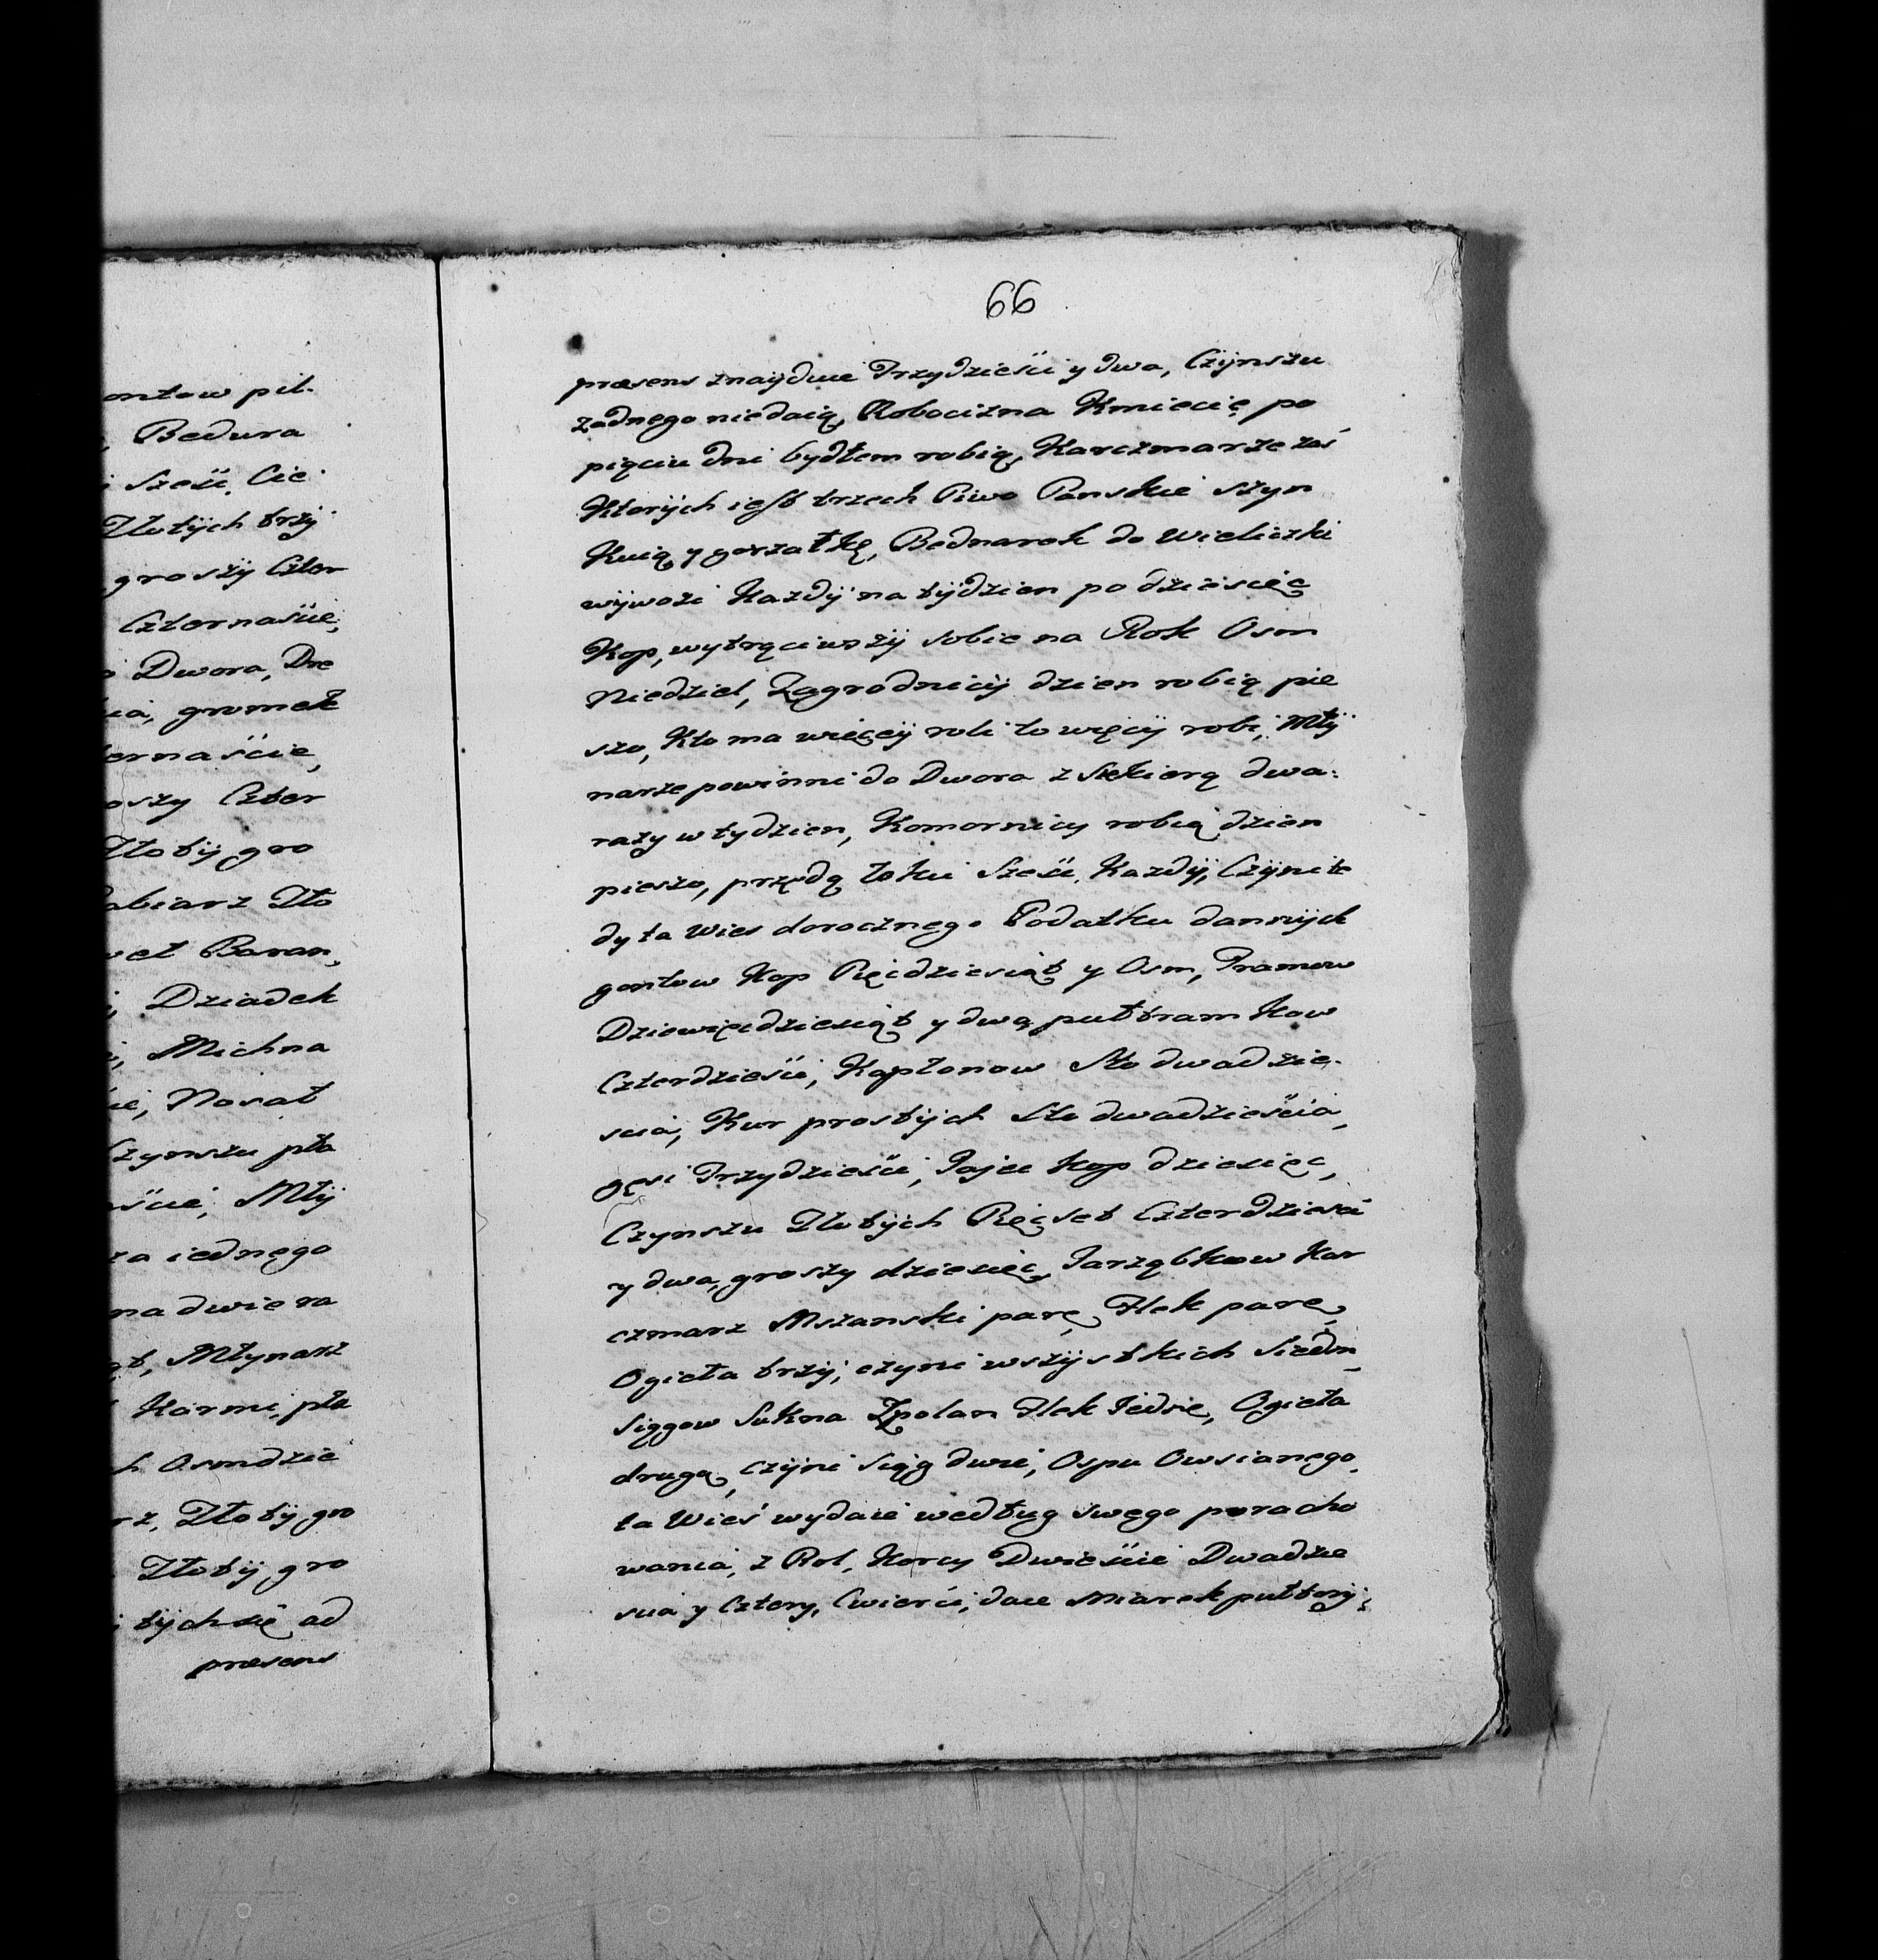 ontow pil-
Bedura
Sześci, Cie
Złotÿch trzÿ
groszÿ Czter
Czternaście,
Dwora, Dre
gromek
ernaście,
oszy Czter
Złotÿ gro
abiarz Zło
Baran,
Dziadek
Michna
Nosal
Czynszu pła
Młÿ
za iednęgo
na dwie ra
Młynarz
Karmi, pła
h Osmdzie
rz, Złotÿ gro
Złotÿ, gro
tÿch się ad
præsens
66
præsens znaÿduie Trzydzieści y dwa, Czÿnszu
zadnego niedaią, Robocizna Kmiecię po
pięciu dni bydłem robią, Karczmarze zaś
Ktorÿch iest trzech Piwo Panskie szyn
Kuią y gorzałkę, Bednarek do Wieliczki
wÿwozi Kazdÿ na tÿdzien po dziesięc
Kop, wytrąciwszÿ sobie na Rok Osm
Niedziel, Zagrodnicÿ dzien robią pie
szo, Kto ma więceÿ roli to więcÿ robi, Młÿ
narze powinni do Dwora z Siekierą dwa:
razy w tydzien, Komornicy robią dzien
pieszo, przędą łokci Sześć, Kazdÿ, Czÿni te
dy ta Wies dorocznego Podatku dannÿch
gontow Kop Pięcdziesiąt y Osm, Tramow
Dziewięcdziesiąt y dwa, pułtram Kow
Czterdzieści, Kapłonow Sto dwadzie-
scia, Kur prostÿch Sto dwadzieścia,
gęsi Trzydzieści, Jajec Kop dziesięc,
Czynszu Złotÿch Pięcset Czterdzieści
y dwa, groszy dziesięc, Jarząbkow Kar
czmarz Mszanski parę, Ilek parę,
Ogieła trzÿ, czyni wszÿstkich Siedm,
Siągow Sukna Zpolan Ilek Jedne, Ogieła
druga, czÿni siąg dwie, Ospu Owsianego,
ta Wieś wydaie według swęgo poracho
wania, z Rol, Korcy Dwieście Dwadzie
scia y Cztery, Cwierci, daie Miarek pułtorÿ,